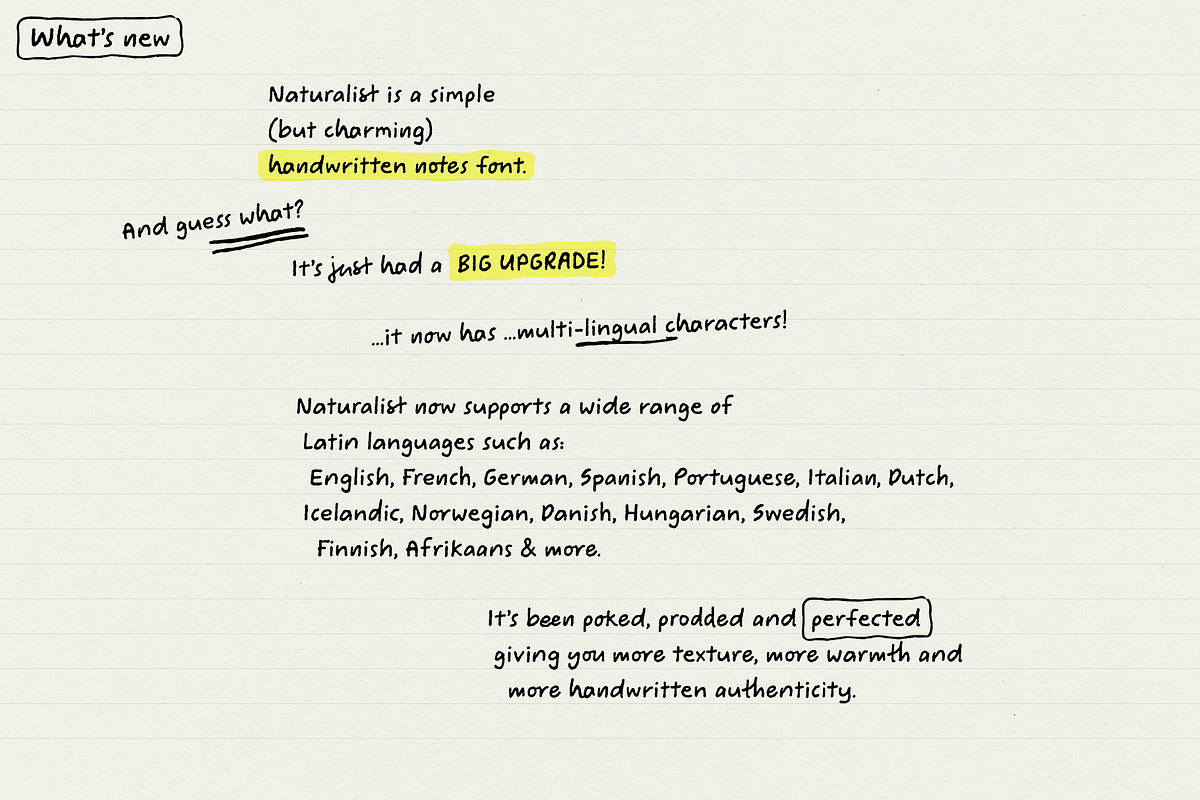 What's new
Naturalist is a simple
(but charming)
handwritten notes font.
And guess what?
It's just had a BIG UPGRADE!
...it now has ...multi-lingual characters!
Naturalist now supports a wide range of
Latin languages such as:
English, French, German, Spanish, Portuguese, Italian, Dutch,
Icelandic, Norwegian, Danish, Hungarian, Swedish,
Finnish, Afrikaans & more.
It's been poked, prodded and perfected
giving you more texture, more warmth and
more handwritten authenticity.